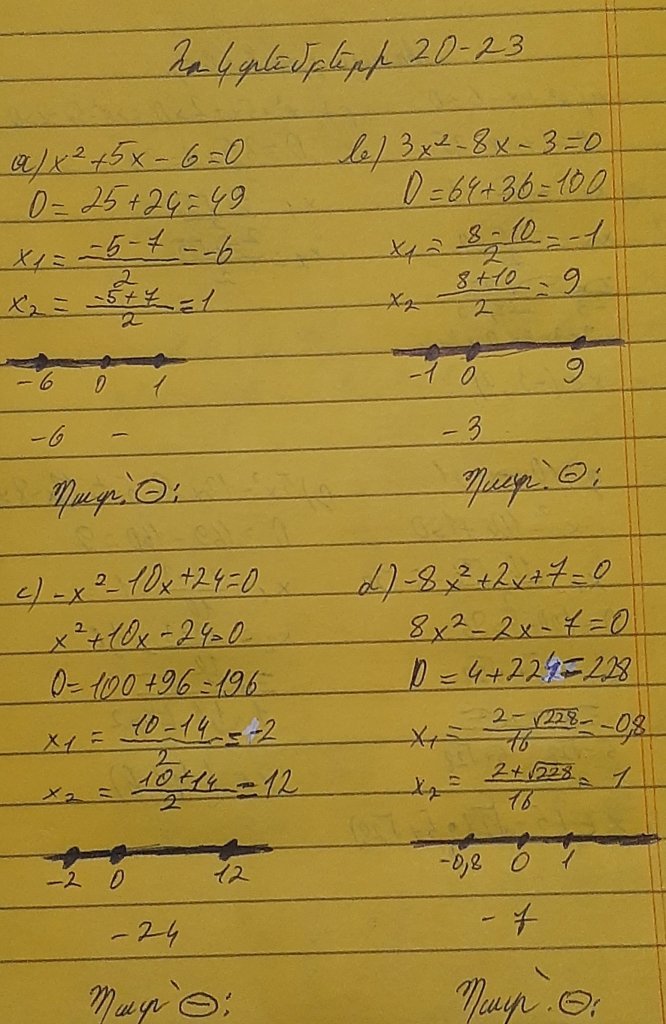 20-23
a) x² + 5x - 6 = 0
D = 25 + 24 = 49
x₁ = (-5 - 7)/2 = -6
x₂ = (-5 + 7)/2 = 1
-6 0 1
-6 -
Պատ՝ ⊖:
b) 3x² - 8x - 3 = 0
D = 64 + 36 = 100
x₁ = (8 - 10)/2 = -1
x₂ (8 + 10)/2 = 9
-1 0 9
-3
Պատ՝ ⊖:
c) -x² - 10x + 24 = 0
x² + 10x - 24 = 0
D = 100 + 96 = 196
x₁ = (10 - 14)/2 = -2
x₂ = (10 + 14)/2 = 12
-2 0 12
-24
Պատ՝ ⊖:
d) -8x² + 2x + 7 = 0
8x² - 2x - 7 = 0
D = 4 + 224 = 228
x₁ = (2 - √228)/16 = -0,8
x₂ = (2 + √228)/16 = 1
-0,8 0 1
-7
Պատ՝ ⊖: